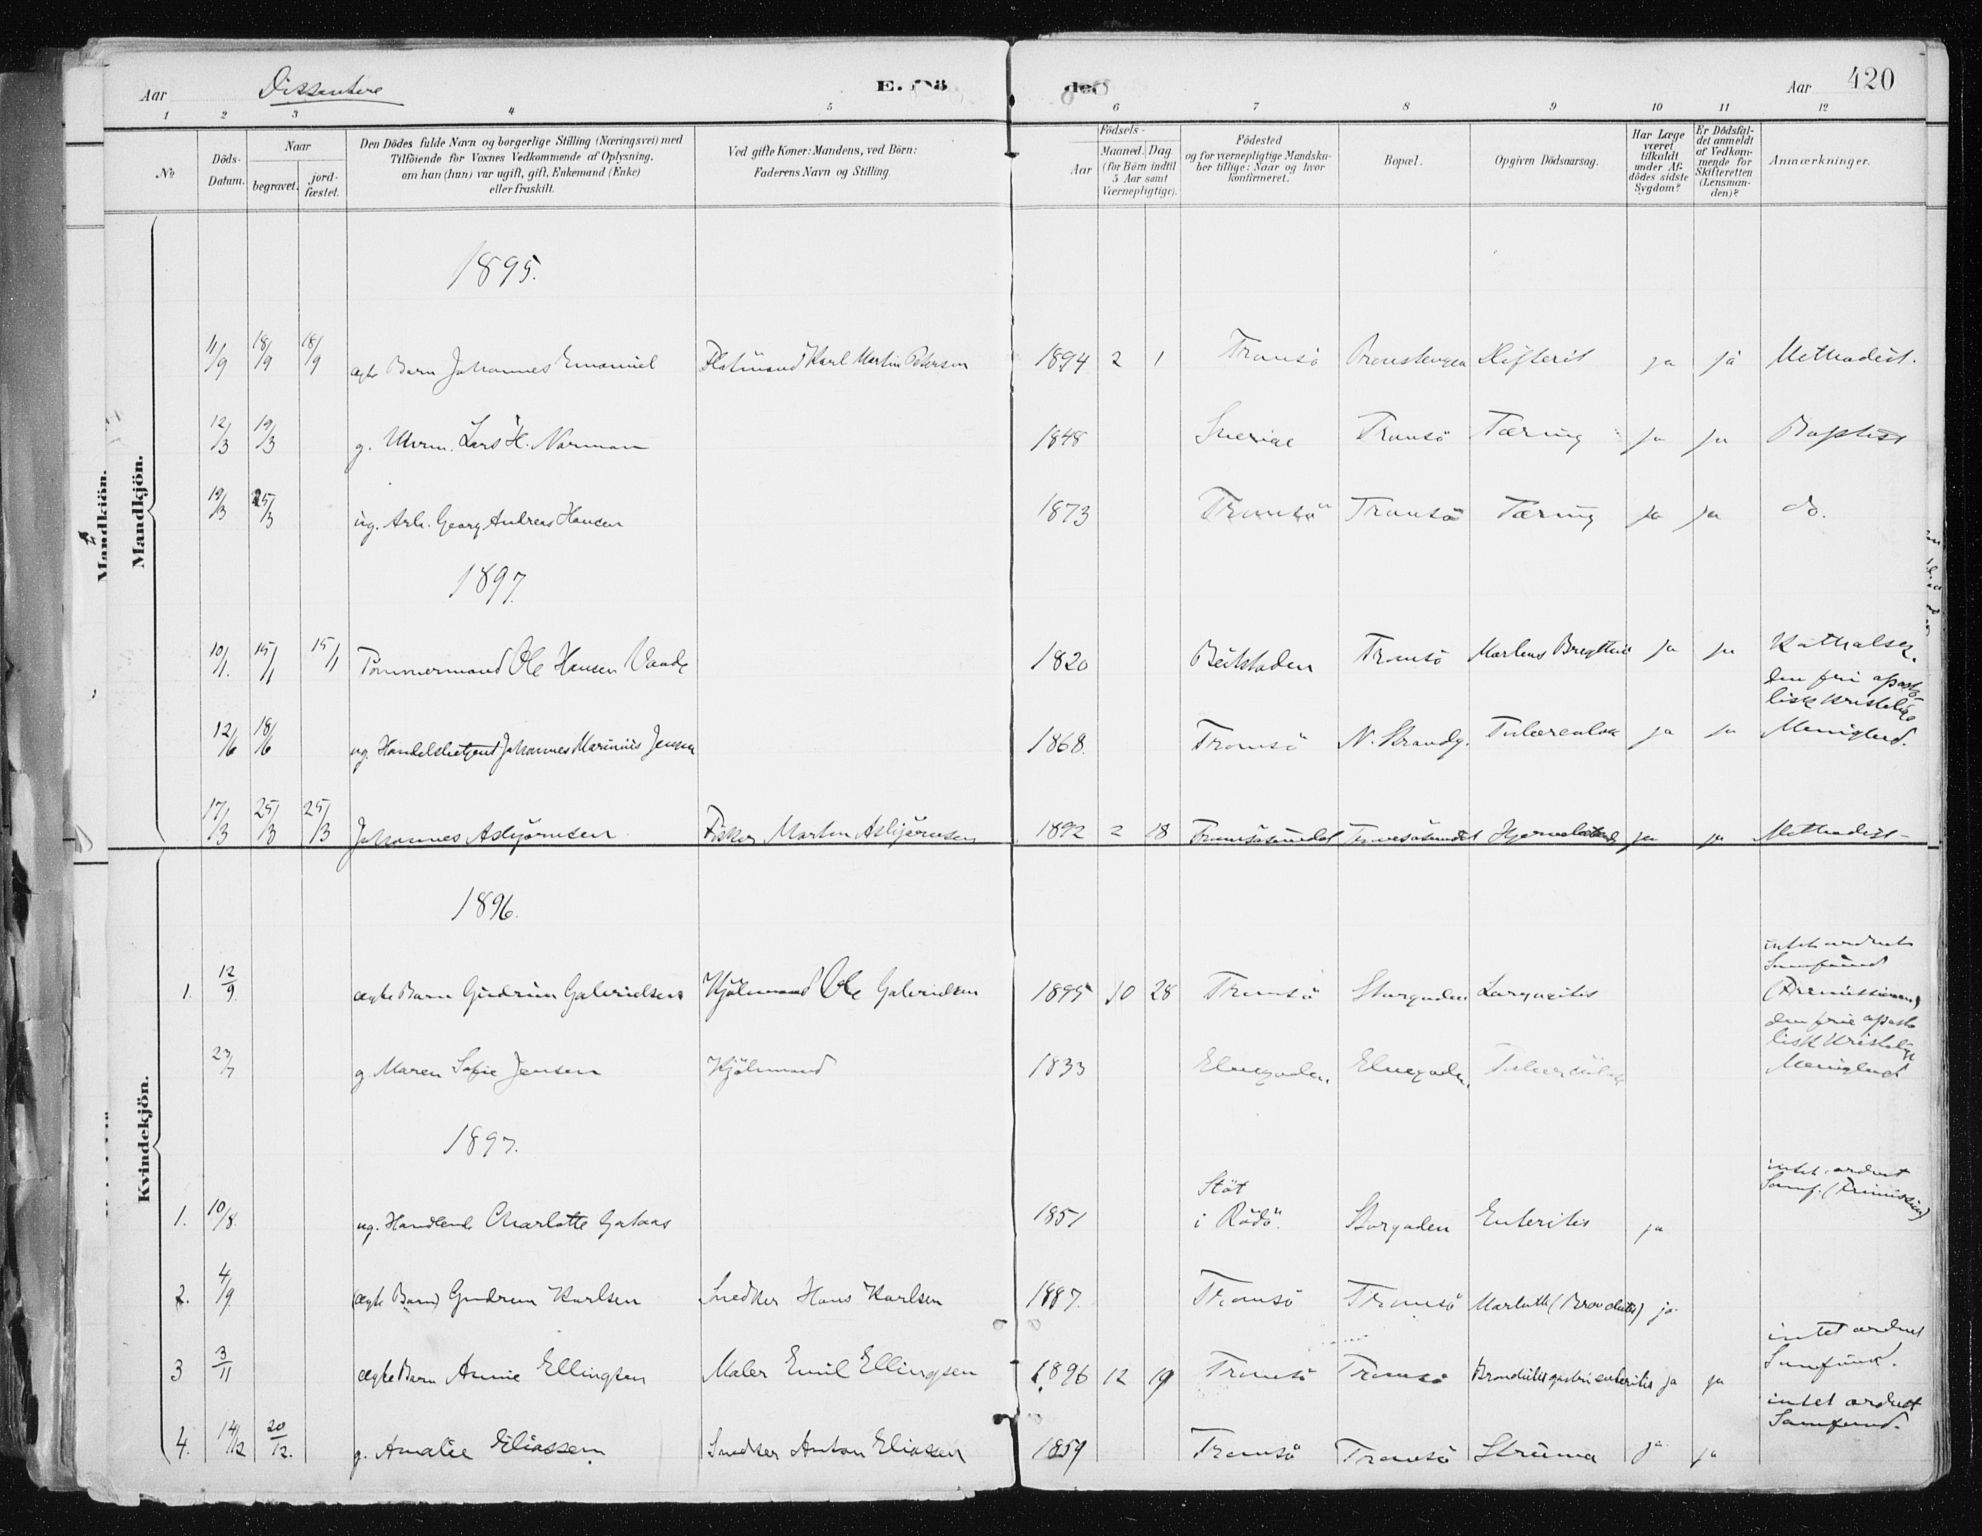 Aar
Dissentere
de
Aar
420
1 2 3 4 5 6 7 8 9 10 11 12
No
Döds-Datum.
Naar
begravet.
jord-fæstet.
Den Dödes fulde Navn og borgerlige Stilling (Næringsvei) med
Tilföiende for Voxnes Vedkommende af Oplysning,
om han (hun) var ugift, gift, Enkemand (Enke)
eller fraskilt.
Ved gifte Koner: Mandens, ved Börn:
Faderens Navn og Stilling.
Födsels-
Aar
Maaned. Dag.
(for Börn indtil
5 Aar samt
Værnepligtige).
Födested
og for værnepligtige Mandska-
ber tillige: Naar og hvor
konfirmeret.
Bopæl.
Opgiven Dödsaarsag.
Har Læge
været
tilkaldt
under Af-
dödes sidste
Sygdom?
Er Dödsfal-
det anmeldt
af Vedkom-
mende for
Skifteretten
(Lensman-
den)?
Anmærkninger.
Mandkjön.
Mandkjön.
1895.
11/9 18/9 18/9 ægte Barn Johannes Emanuel Karl Martin Petersen 1894 2 1 Tromsö Difterit ja ja Methodist.
12/3 19/3 g. Uhrm. Lars H. Norman 1848 Sverige Tromsö Tæring ja ja Baptist
19/3 25/3 ug. Arb. Georg Andreas Hansen 1873 Tromsö Tromsö Tæring ja ja do.
1897.
10/1. 15/1 15/1 Tömmermand Ole Hansen 1820 Beitstaden Tromsö ja ja Katholsk.
12/6 18/6 ug. Handelsbetjent Johannes Marinius Jensen 1868. Tromsö N. Strandg. Tuberculose ja ja den frie aposto-
lisk kristelige
Menighed.
17/3 25/3 25/3 Johannes Asbjörnsen Fisker Martin Asbjörnsen 1892 2 18 Tromsösundet Tromsösundet ja ja Methodist
Kvindekjön.
1896.
1. 12/9 ægte Barn Gudrun Gabrielsen Kjölmand Ole Gabrielsen 1895 10 28 Tromsö Storgaden Laryngitis intet ordnet
Samfund
23/7 g. Maren Sofie Jensen Kjölmand 1833 Elvegaden. Elvegaden. Tuberculose den frie aposto
lisk kristelige
Menighed
1897.
1. 10/8. ug. Handlende Charlotte 1851 Stöt
i Rödö. Storgaden Enteritis ja intet ordnet
Samf.
2. 4/9 (ægte Barn) Gudrun Karlsen Snedker Hans Karlsen 1887. Tromsö Tromsö ja
3 3/11 ægte Barn Annie Ellingsen Maler Emil Ellingsen 1896 12 19 Tromsö Tromsö ja ja intet ordnet
Samfund.
4. 14/12 20/12. g. Amalie Eliassen Snedker Anton Eliassen Tromsö Tromsö Struma ja ja intet ordnet
Samfund.